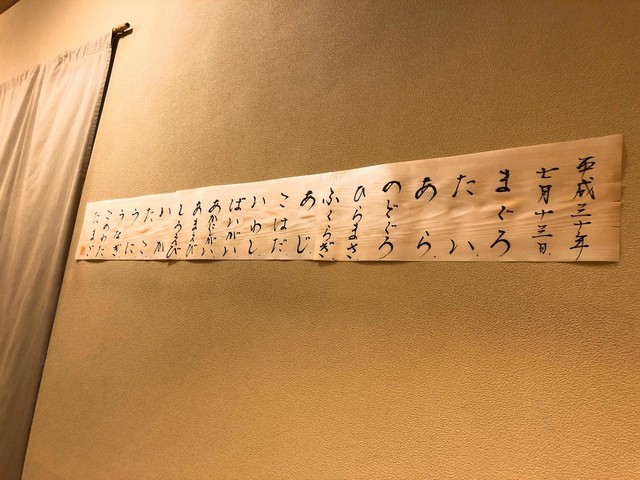 平成三十年
七月十三日
まぐろ
たい
あら
のどぐろ
ひらまさ
ふくらぎ
あじ
こはだ
いわし
ばいがい
あかがい
あまえび
しろえび
いか
たこ
うに
うなぎ
このわた
たまご